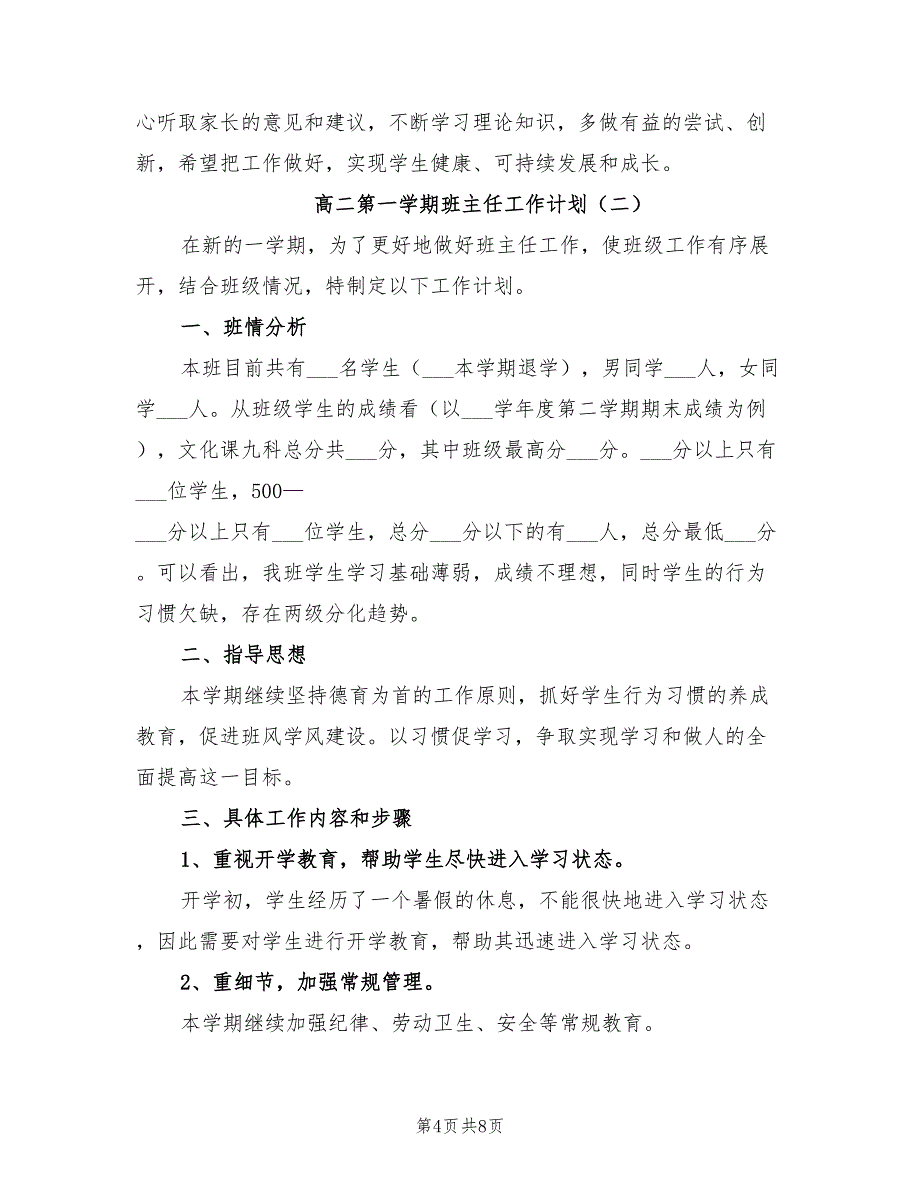 心听取家长的意见和建议，不断学习理论知识，多做有益的尝试、创
新，希望把工作做好，实现学生健康、可持续发展和成长。
高二第一学期班主任工作计划（二）
在新的一学期，为了更好地做好班主任工作，使班级工作有序展
开，结合班级情况，特制定以下工作计划。
一、班情分析
本班目前共有___名学生（___本学期退学），男同学___人，女同
学___人。从班级学生的成绩看（以___学年度第二学期期末成绩为例
），文化课九科总分共___分，其中班级最高分___分。___分以上只有
___位学生，500—
___分以上只有___位学生，总分___分以下的有___人，总分最低___分
。可以看出，我班学生学习基础薄弱，成绩不理想，同时学生的行为
习惯欠缺，存在两级分化趋势。
二、指导思想
本学期继续坚持德育为首的工作原则，抓好学生行为习惯的养成
教育，促进班风学风建设。以习惯促学习，争取实现学习和做人的全
面提高这一目标。
三、具体工作内容和步骤
1、重视开学教育，帮助学生尽快进入学习状态。
开学初，学生经历了一个暑假的休息，不能很快地进入学习状态
，因此需要对学生进行开学教育，帮助其迅速进入学习状态。
2、重细节，加强常规管理。
本学期继续加强纪律、劳动卫生、安全等常规教育。
第4页共8页